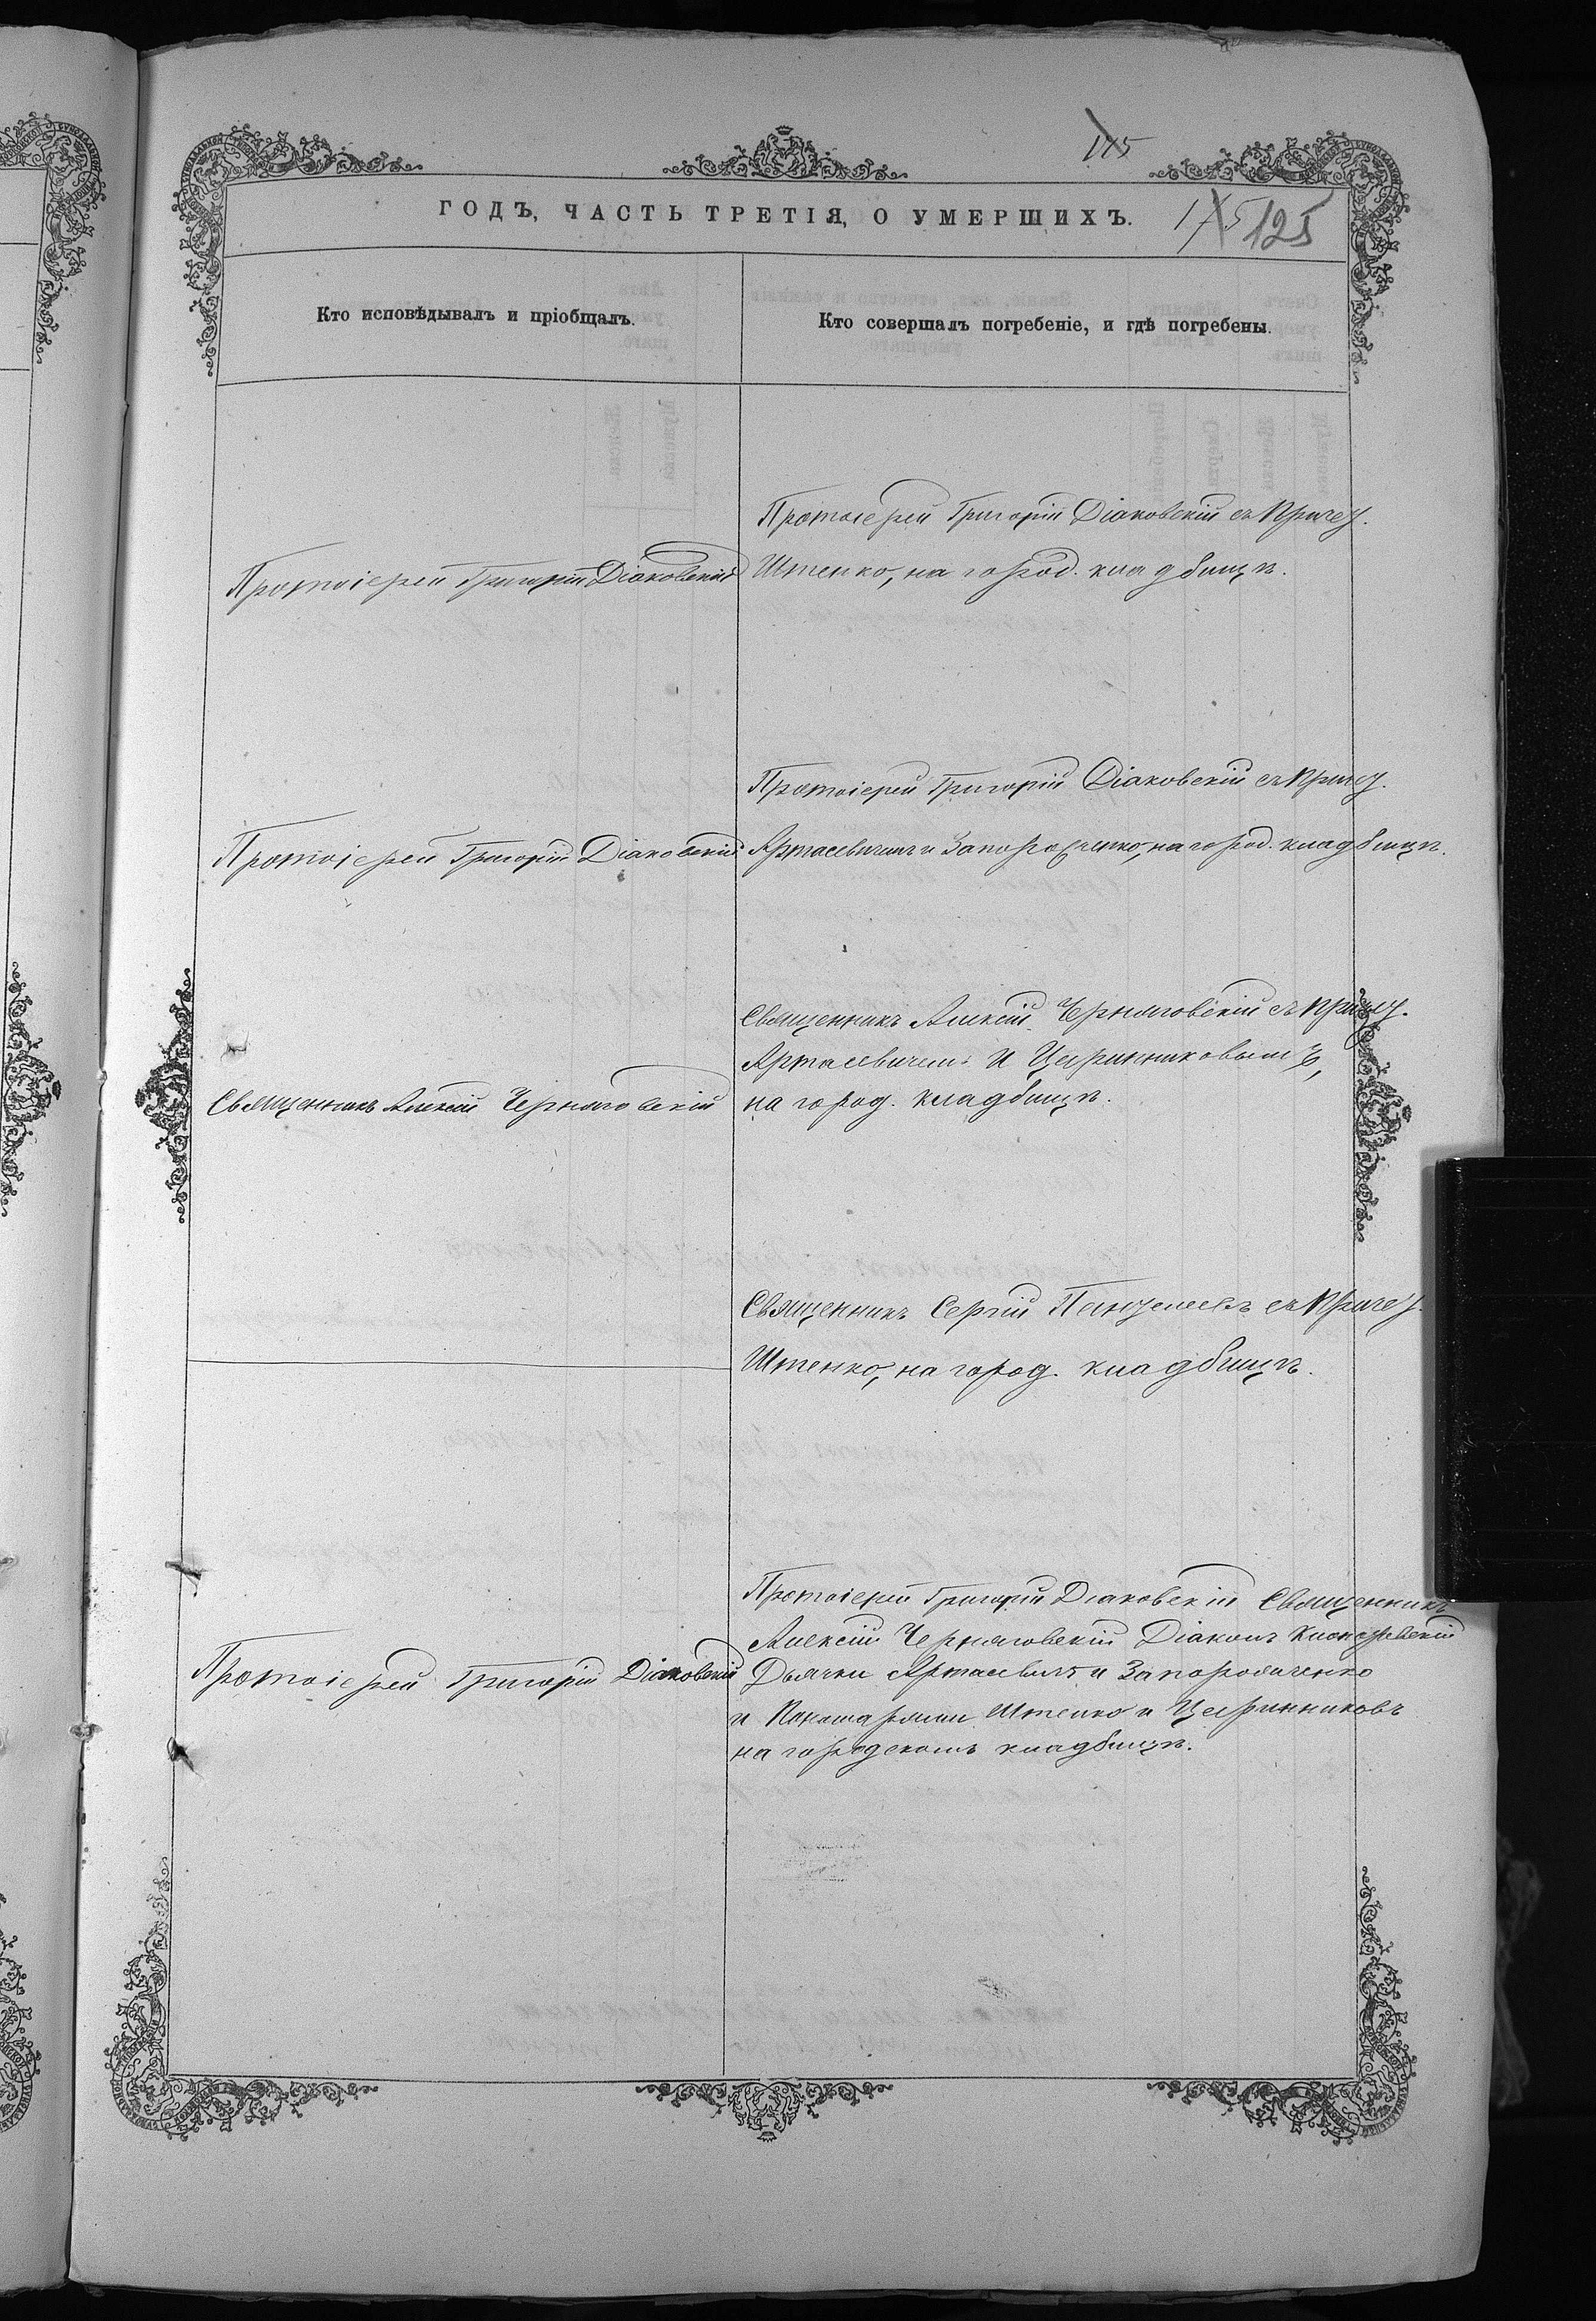 175
ГОДЪ, ЧАСТЬ ТРЕТІЯ, О УМЕРШИХЪ.
175 125
Кто исповѣдывалъ и пріобщалъ.
Кто совершалъ погребеніе, и гдѣ погребены.
Протоіерей Григорій Діаковскій
Протоіерей Григорій Діаковскій съ причет.
Штенко, на город. кладбищѣ.
Протоіерей Григорій Діаковскій
Протоіерей Григорій Діаковскій съ причет.
Артасевичемъ и Запорожченко, на город. кладбищѣ.
Священникъ Алексій Черняговскій
Священникъ Алексій Черняговскій съ причет.
Артасевичемъ и Цыринниковымъ,
на город. кладбищѣ.
Священникъ Сергій съ причет.
Штенко, на город. кладбищѣ.
Протоіерей Григорій Діаковскій
Протоіерей Григорій Діаковскій Священникъ
Алексій Черняговскій Діаконъ
Дьячки Артасевичъ и Запорожченко
и Пономарями Штенко и Цыринниковъ
на городскомъ кладбищѣ.